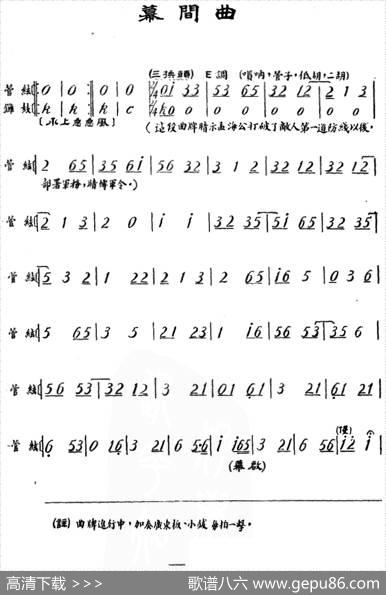 幕間曲
(三換頭) E調 (嗩吶,管子,低胡,二胡)
管絃 0 | 0 | 0 | 0 2/4 0i 33 | 53 65 | 32 12 | 2 1 3
(這段曲牌暗示孟海公打破了敵人第一道防綫以後,
管絃 2 65 | 35 6i | 56 32 | 3 1 2 | 32 12 | 32 12
部署軍務,暗傳軍令。)
管絃 2 1 3 | 2 0 | i i | 32 35 | 5i 65 | 32 35
管絃 5 3 2 | 1 22 | 2 1 3 | 2 65 | i6 5 | 0 3 6
管絃 5 65 | 3 5 | 21 23 | 1 i6 | 56 53 | 35 6
管絃 56 53 | 32 12 | 3 21 | 01 61 | 3 21 | 61 21
管絃 6 53 | 0 16 | 3 21 | 6 5·6 | i i65 | 3 21 | 6 56 | i2 i
(慢)
(幕啟)
(註) 曲牌進行中,加奏廣東板、小鈸每拍一擊。
高清下载 >>>
歌谱八六 www.gepu86.com